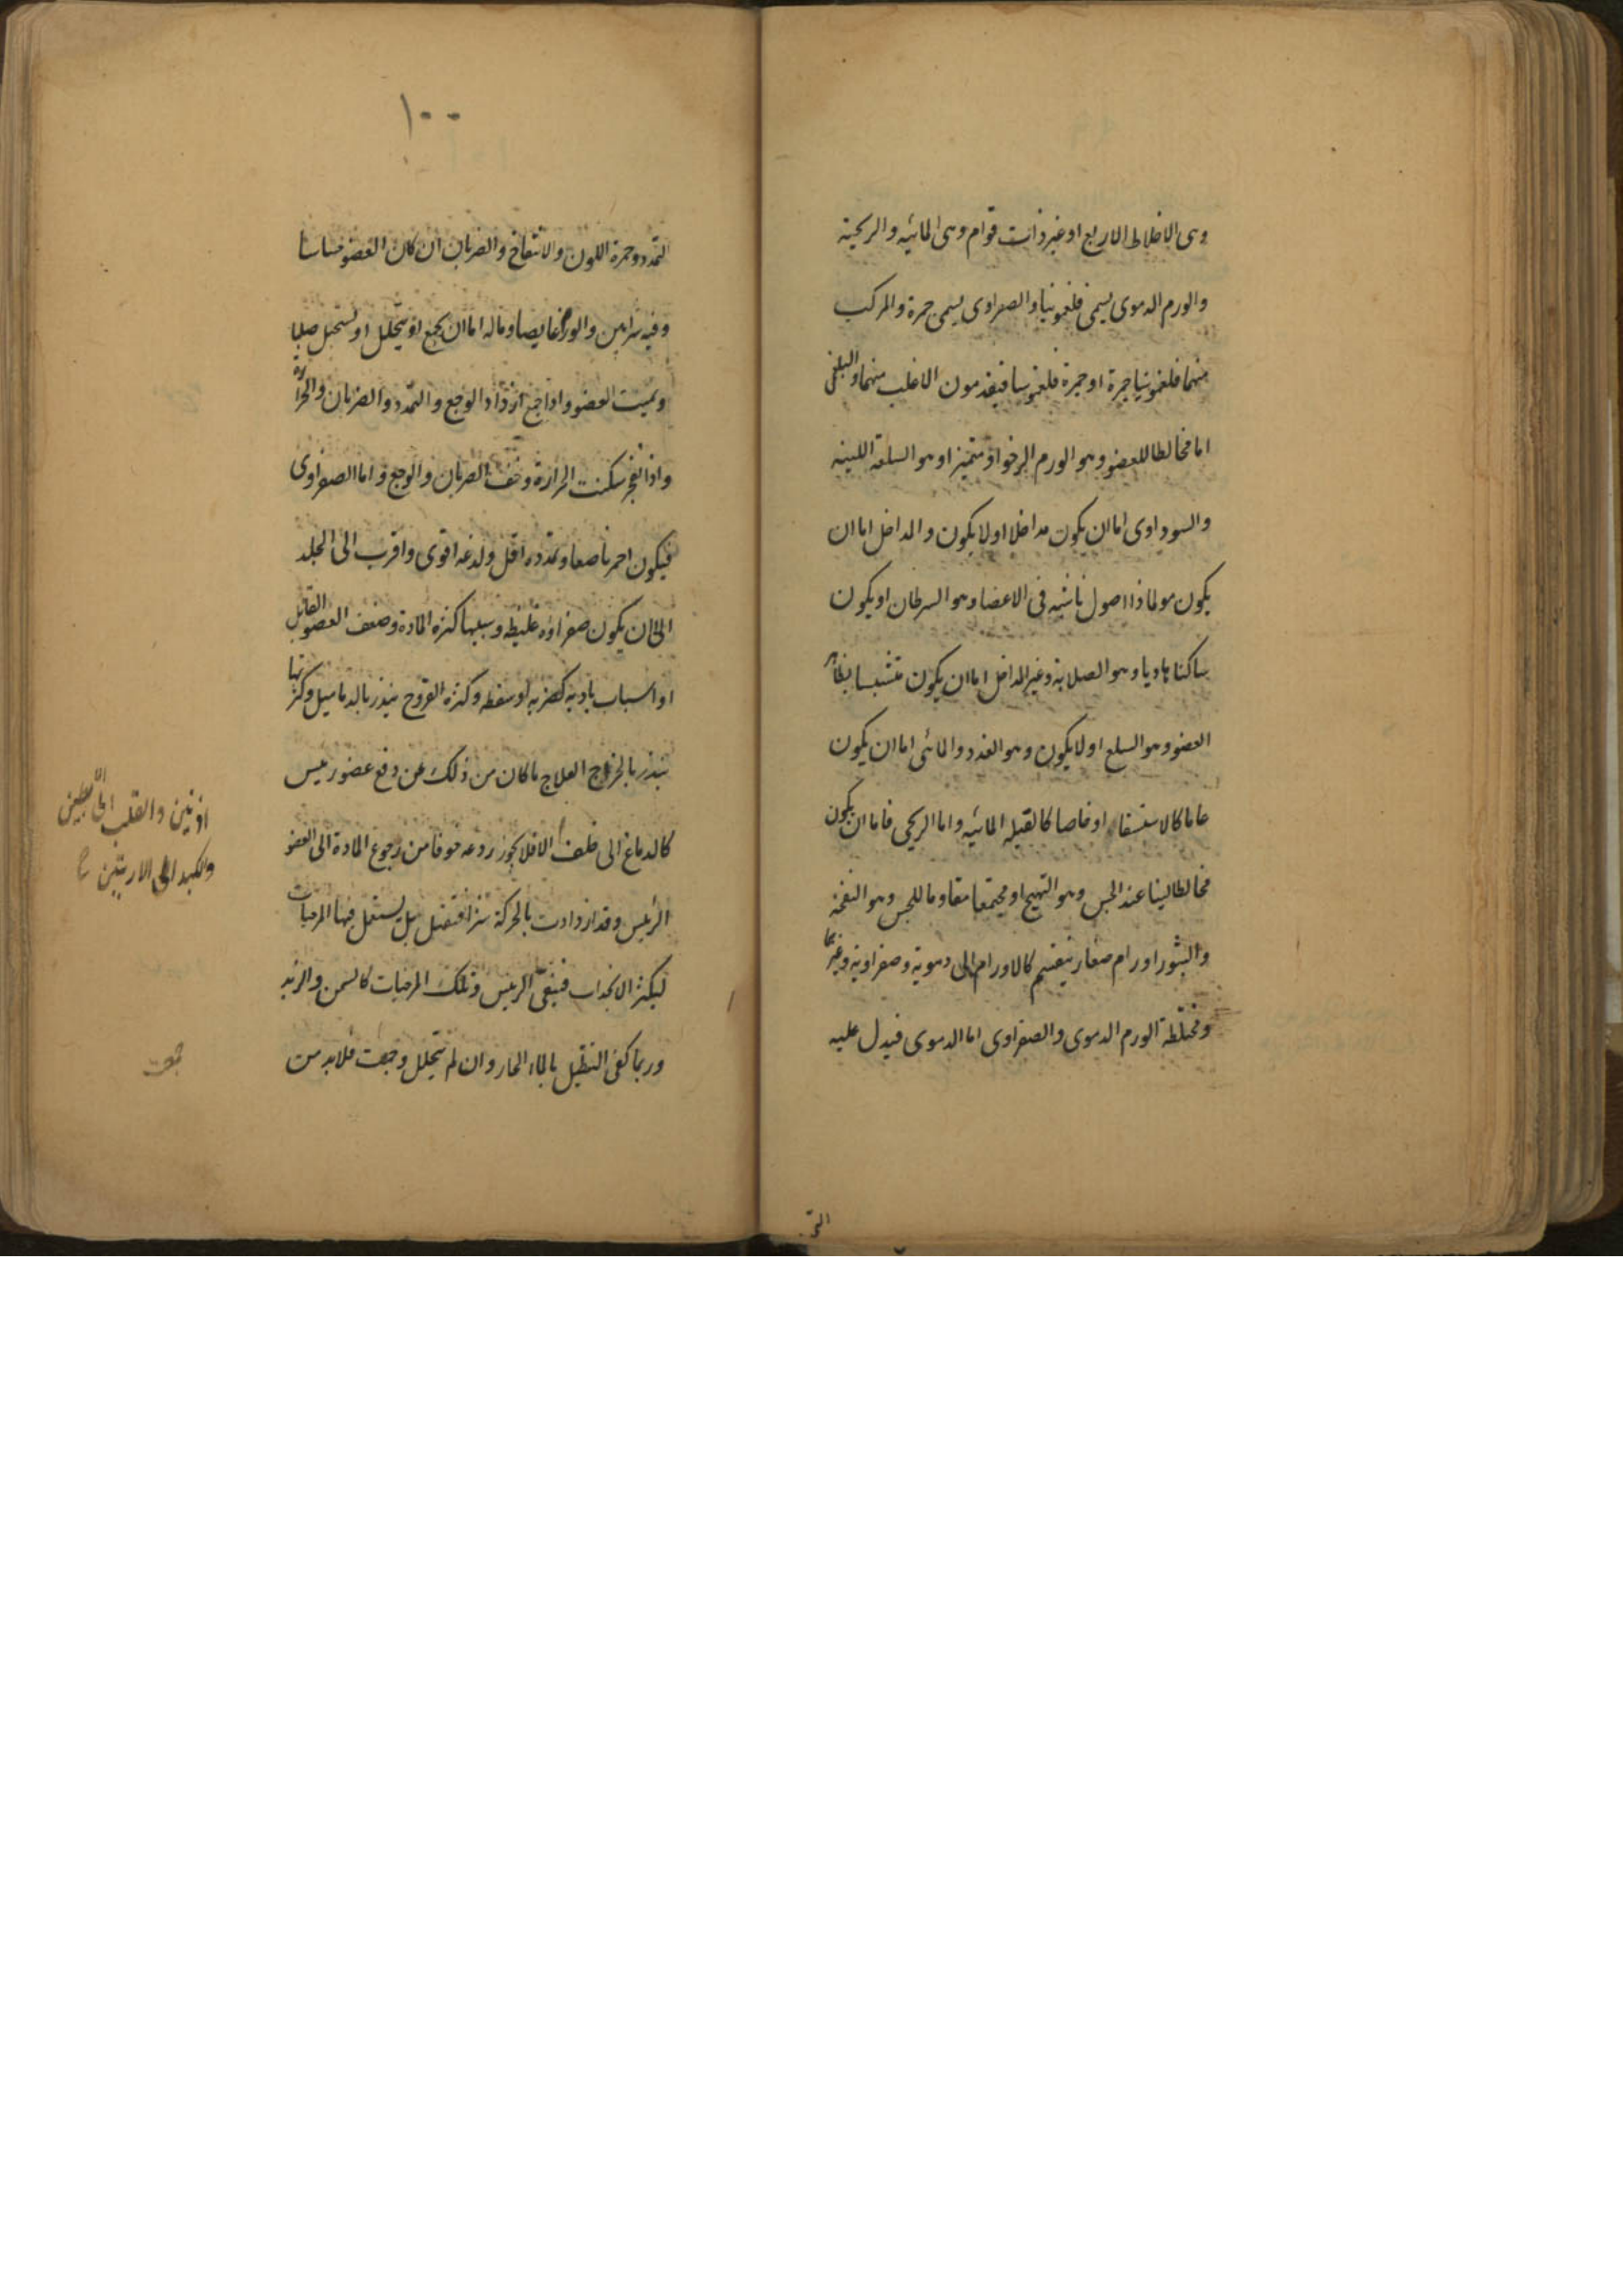 وهى الاخلاط الاربع او غير ذات قوام وهى المائيه والريحية
والورم الدموى يسمى فلغمونيا والصفراوى يسمى حمرة والمركب
منهما فلغمونيا حمرة او حمرة فلغمونيا فيقدمون الاغلب منهما والبلغمى
اما مخالطا للعضو وهو الورم الرخو او متميزا وهو السلعة اللينه
والسوداوى اما ان يكون مداخلا اولا يكون والمداخل اما ان
يكون مولما ذا اصول ناشيه فى الاعضا وهو السرطان او يكون
ساكنا هاديا وهو الصلابة وغير المداخل اما ان يكون متشبسا بظاهر
العضو وهو السلع اولا يكون وهو الغدد والمائى اما ان يكون
عاما كالاستسقاء او خاصا كالقيله المائيه واما الريحى فاما ان يكون
مخالطا لينا عند الجس وهو التهيج او مجتمعا مقاوما للجس وهو النفخة
والبثور اورام صغار ينقسم كالاورام الى دموية وصفراوية وغيرها
ومختلطة الورم الدموى والصفراوى اما الدموى فيدل عليه
١٠٠
التمدد وحمرة اللون والانتفاخ والضربان ان كان العضو حساسا
وفيه شرايين والورم غايصا وماله اما ان يجمع او يتحلل او يستحيل صلبا
ويميت العضو واذا جمع ازداد الوجع والتمدد والضربان والحرارة
واذا نفجر سكنت الحرارة وخف الضربان والوجع واما الصفراوى
فيكون احمر ناصعا وتمدده اقل ولدغه اقوى واقرب الى الجلد
الا ان يكون صفراوه غليظه وسببها كثرة المادة وضعف العضو القابل
او اسباب باديه كضربه او سقطه وكثرة القروح ينذر بالدماميل وكثرتها
ينذر بالخراج العلاج ما كان من ذلك عن دفع عضو رئيس
كالدماغ الى خلف الا فلا يجوز ردعه خوفا من رجوع المادة الى العضو
الرئيس وقد ازدادت بالحركة شرا فتقتل بل يستعمل فيها المرخيات
ليكثر الانجذاب فينقى الرئيس وتلك المرخيات كالسمن والزبد
وربما كفى التنطيل بالماء الحار وان لم يتحلل وجمعت فلابد من
اذنين والقلب الى الابطين
والكبد الى الاربتين
جمعت